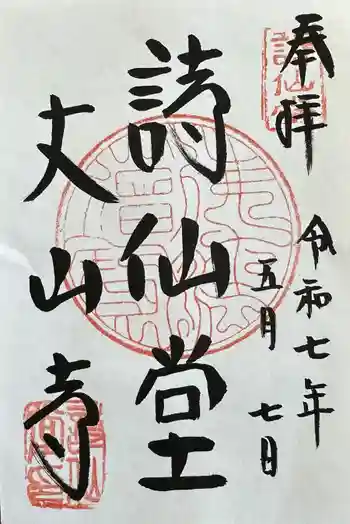 奉拝
詩仙堂
令和七年
五月七日
詩仙堂
丈山寺